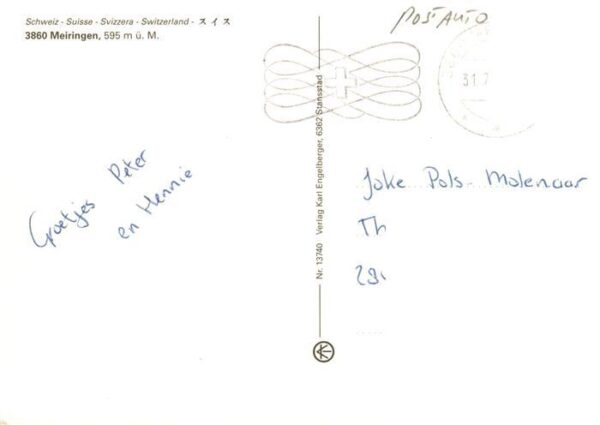 Schweiz · Suisse · Svizzera · Switzerland · スイス
3860 Meiringen, 595 m ü. M.
POSTAUTO
31.7
Groetjes Peter
en Hennie
Joke Pols-Molenaar
Th
Nr. 13740 Verlag Karl Engelberger, 6362 Stansstad